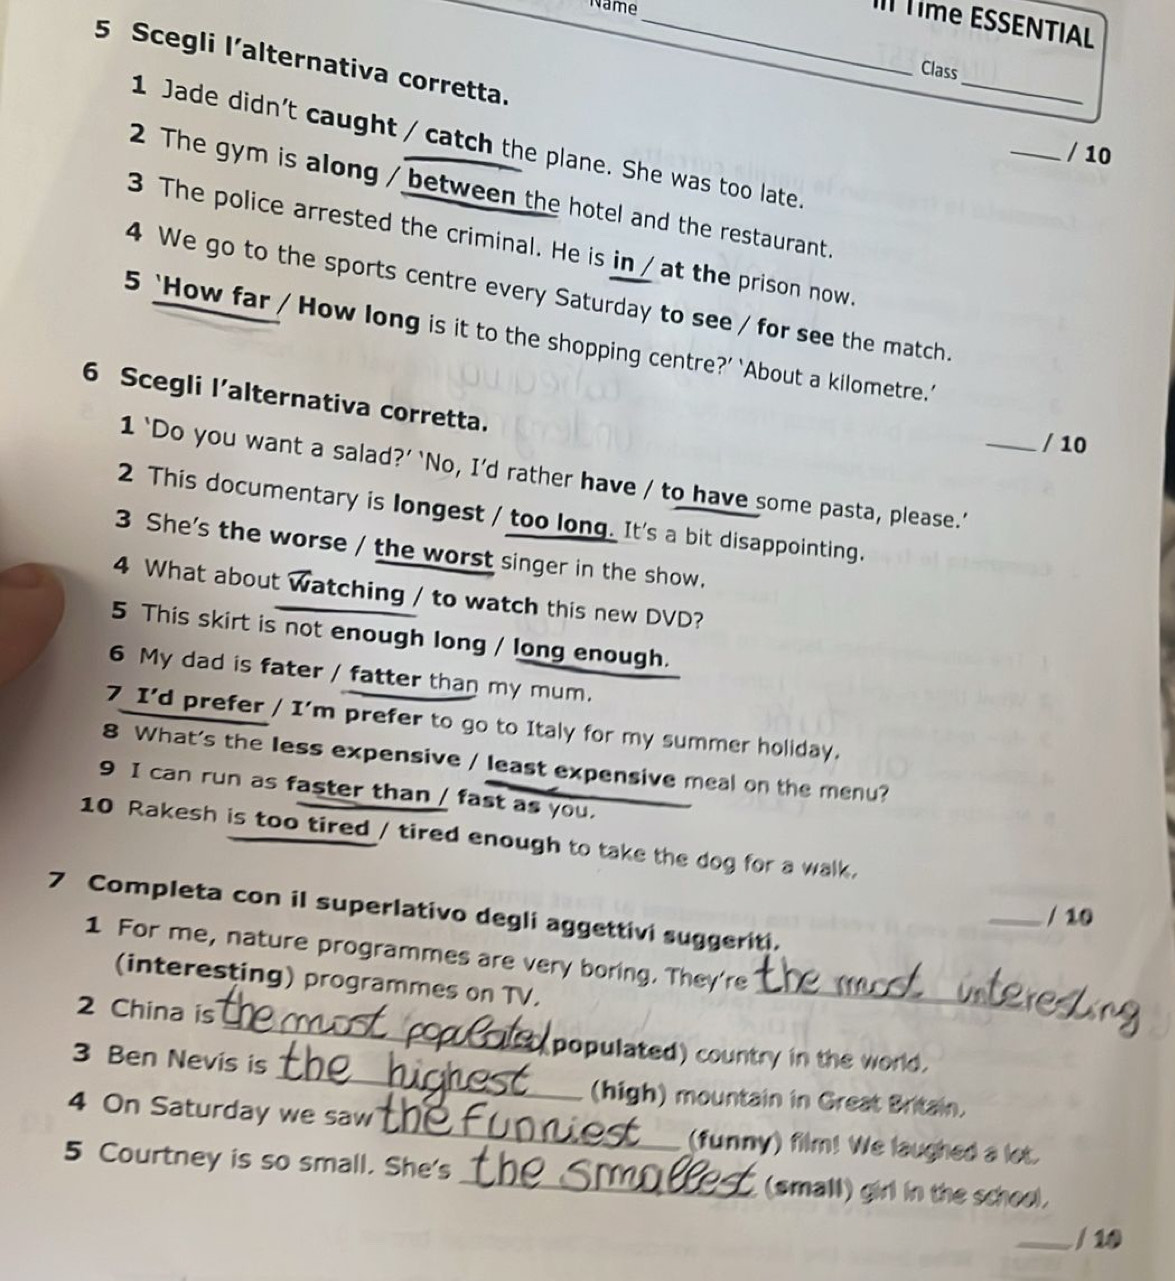 Name
In Time ESSENTIAL
Class
5 Scegli l'alternativa corretta.
1 Jade didn't caught / catch the plane. She was too late.
2 The gym is along / between the hotel and the restaurant.
3 The police arrested the criminal. He is in / at the prison now.
4 We go to the sports centre every Saturday to see / for see the match.
5 'How far / How long is it to the shopping centre?' 'About a kilometre.'
/ 10
6 Scegli l'alternativa corretta.
1 'Do you want a salad?' 'No, I'd rather have / to have some pasta, please.'
2 This documentary is longest / too long. It's a bit disappointing.
3 She's the worse / the worst singer in the show.
4 What about watching / to watch this new DVD?
5 This skirt is not enough long / long enough.
6 My dad is fater / fatter than my mum.
7 I'd prefer / I'm prefer to go to Italy for my summer holiday.
8 What's the less expensive / least expensive meal on the menu?
9 I can run as faster than / fast as you.
10 Rakesh is too tired / tired enough to take the dog for a walk.
/ 10
7 Completa con il superlativo degli aggettivi suggeriti.
1 For me, nature programmes are very boring. They're the most interesting
(interesting) programmes on TV.
2 China is the most populated (populated) country in the world.
3 Ben Nevis is the highest (high) mountain in Great Britain.
4 On Saturday we saw the funniest (funny) film! We laughed a lot.
5 Courtney is so small. She's the smallest (small) girl in the school.
/ 10
/ 10